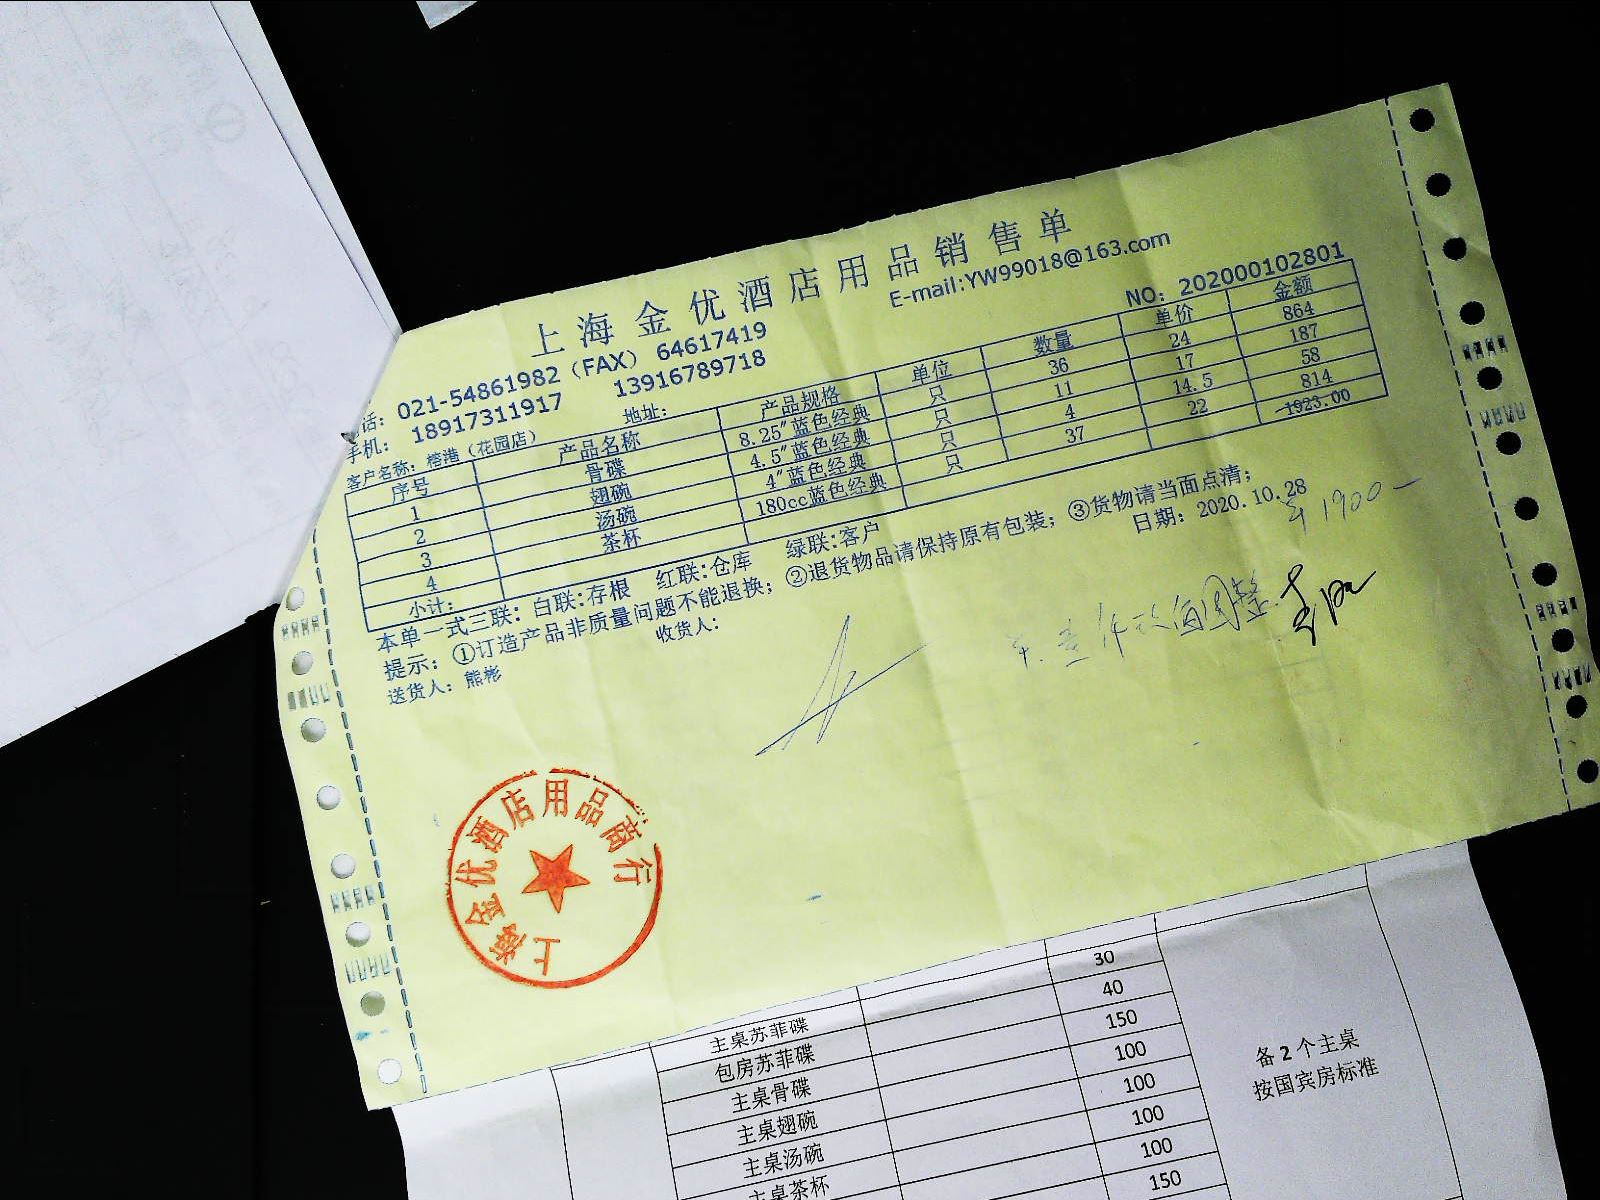 上海金优酒店用品销售单
话：021-54861982（FAX）64617419 E-mail:YW99018@163.com
手机：18917311917 13916789718
客户名称：榕港（花园店） 地址： NO：202000102801
序号 产品名称 产品规格 单位 数量 单价 金额
1 骨碟 8.25″蓝色经典 只 36 24 864
2 翅碗 4.5″蓝色经典 只 11 17 187
3 汤碗 4″蓝色经典 只 4 14.5 58
4 茶杯 180cc蓝色经典 只 37 22 814
小计： 1923.00
本单一式三联：白联:存根 红联:仓库 绿联:客户
提示：①订造产品非质量问题不能退换；②退货物品请保持原有包装；③货物请当面点清；
送货人：熊彬 收货人： 日期：2020.10.28
1900
上海金优酒店用品商行
30
主桌苏菲碟 40
包房苏菲碟 150
主桌骨碟 100
主桌翅碗 100
主桌汤碗 100
主桌茶杯 100
150
备2个主桌
按国宾房标准